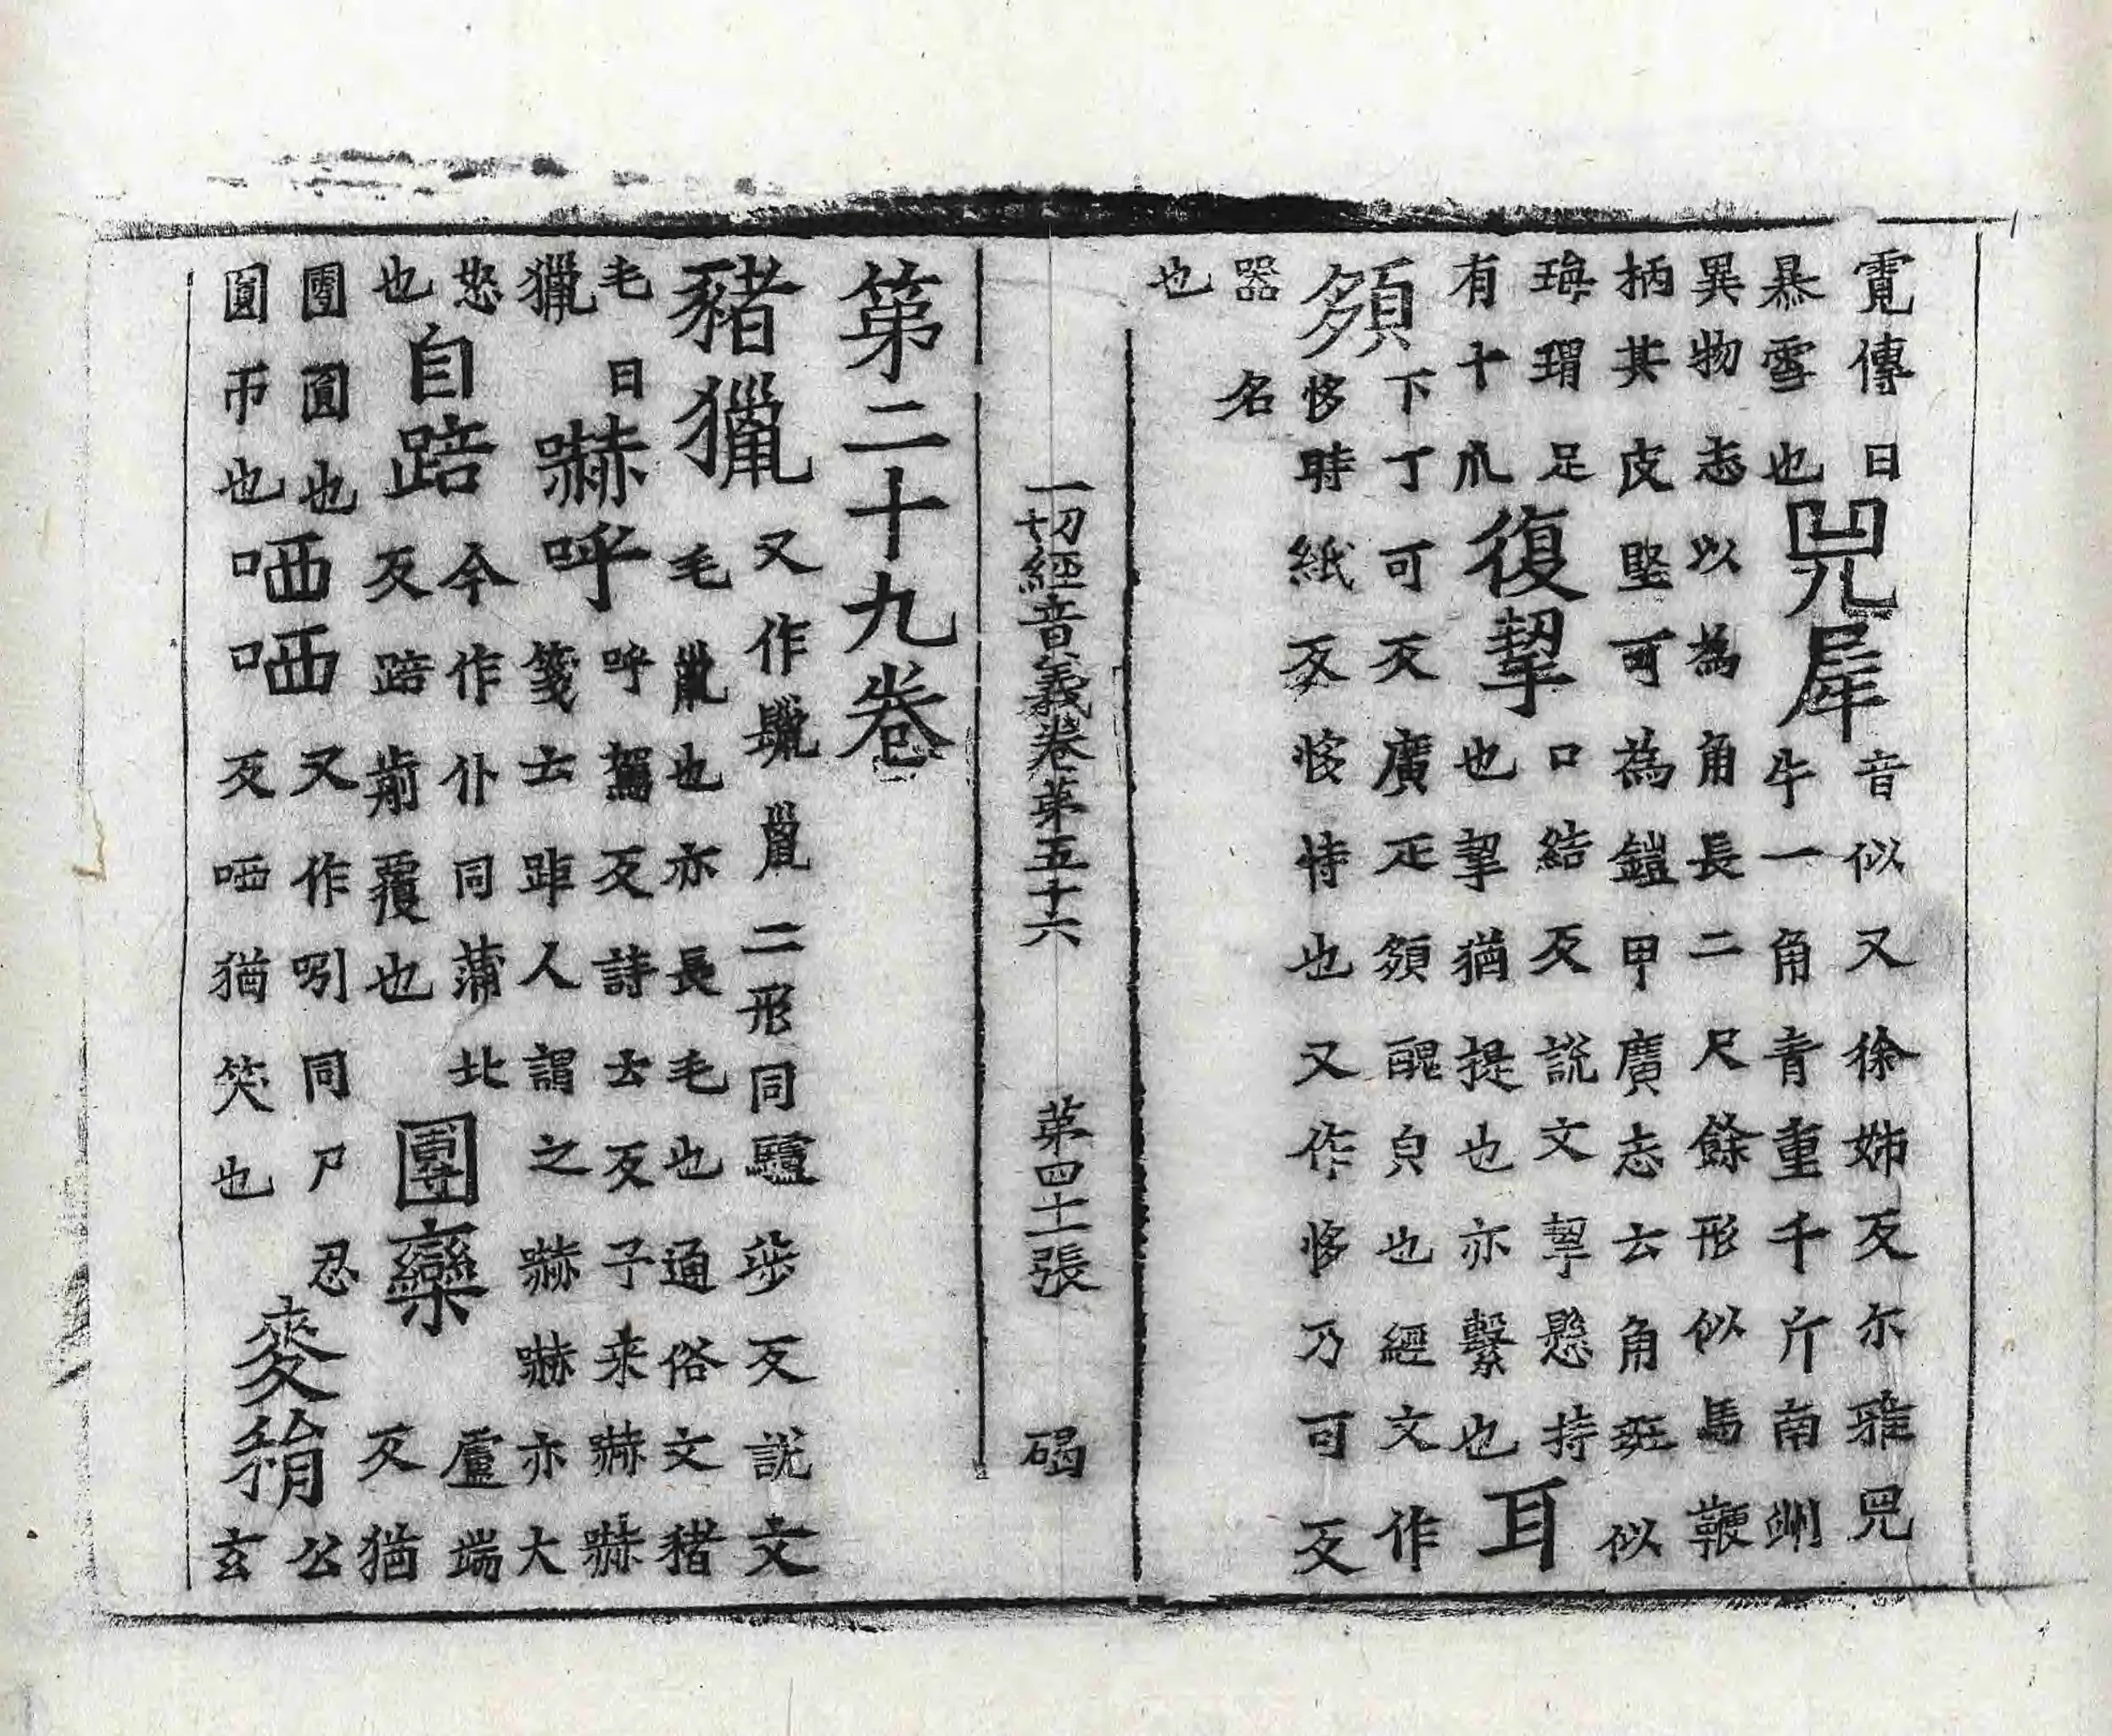 霓傳曰暴雪也兕犀音似又徐姊反尒雅兕牛一角青重千斤南州
異物志以為角長二尺餘形似馬鞭柄其皮堅可為鎧甲廣志云角斑似
瑇瑁足有十爪復挈口結反說文挈懸持也挈猶提也亦繫也耳
䫂下丁可反廣疋䫂醜皃也經文作恀時紙反恀恃也又作恀乃可反
器名也
一切經音義卷第五十六 第四十一張 碣
第二十九卷
豬獵又作二形同驢步反說文毛鬛也亦長毛也通俗文豬
毛曰獵嚇呼呼駕反詩云反予来嚇嚇箋云距人謂之嚇嚇亦大
怒也自踣今作仆同蒲北反踣前覆也團欒盧端反猶
團圓也圓帀也哂哂又作吲同尸忍反哂猶笑也麥䅌公玄